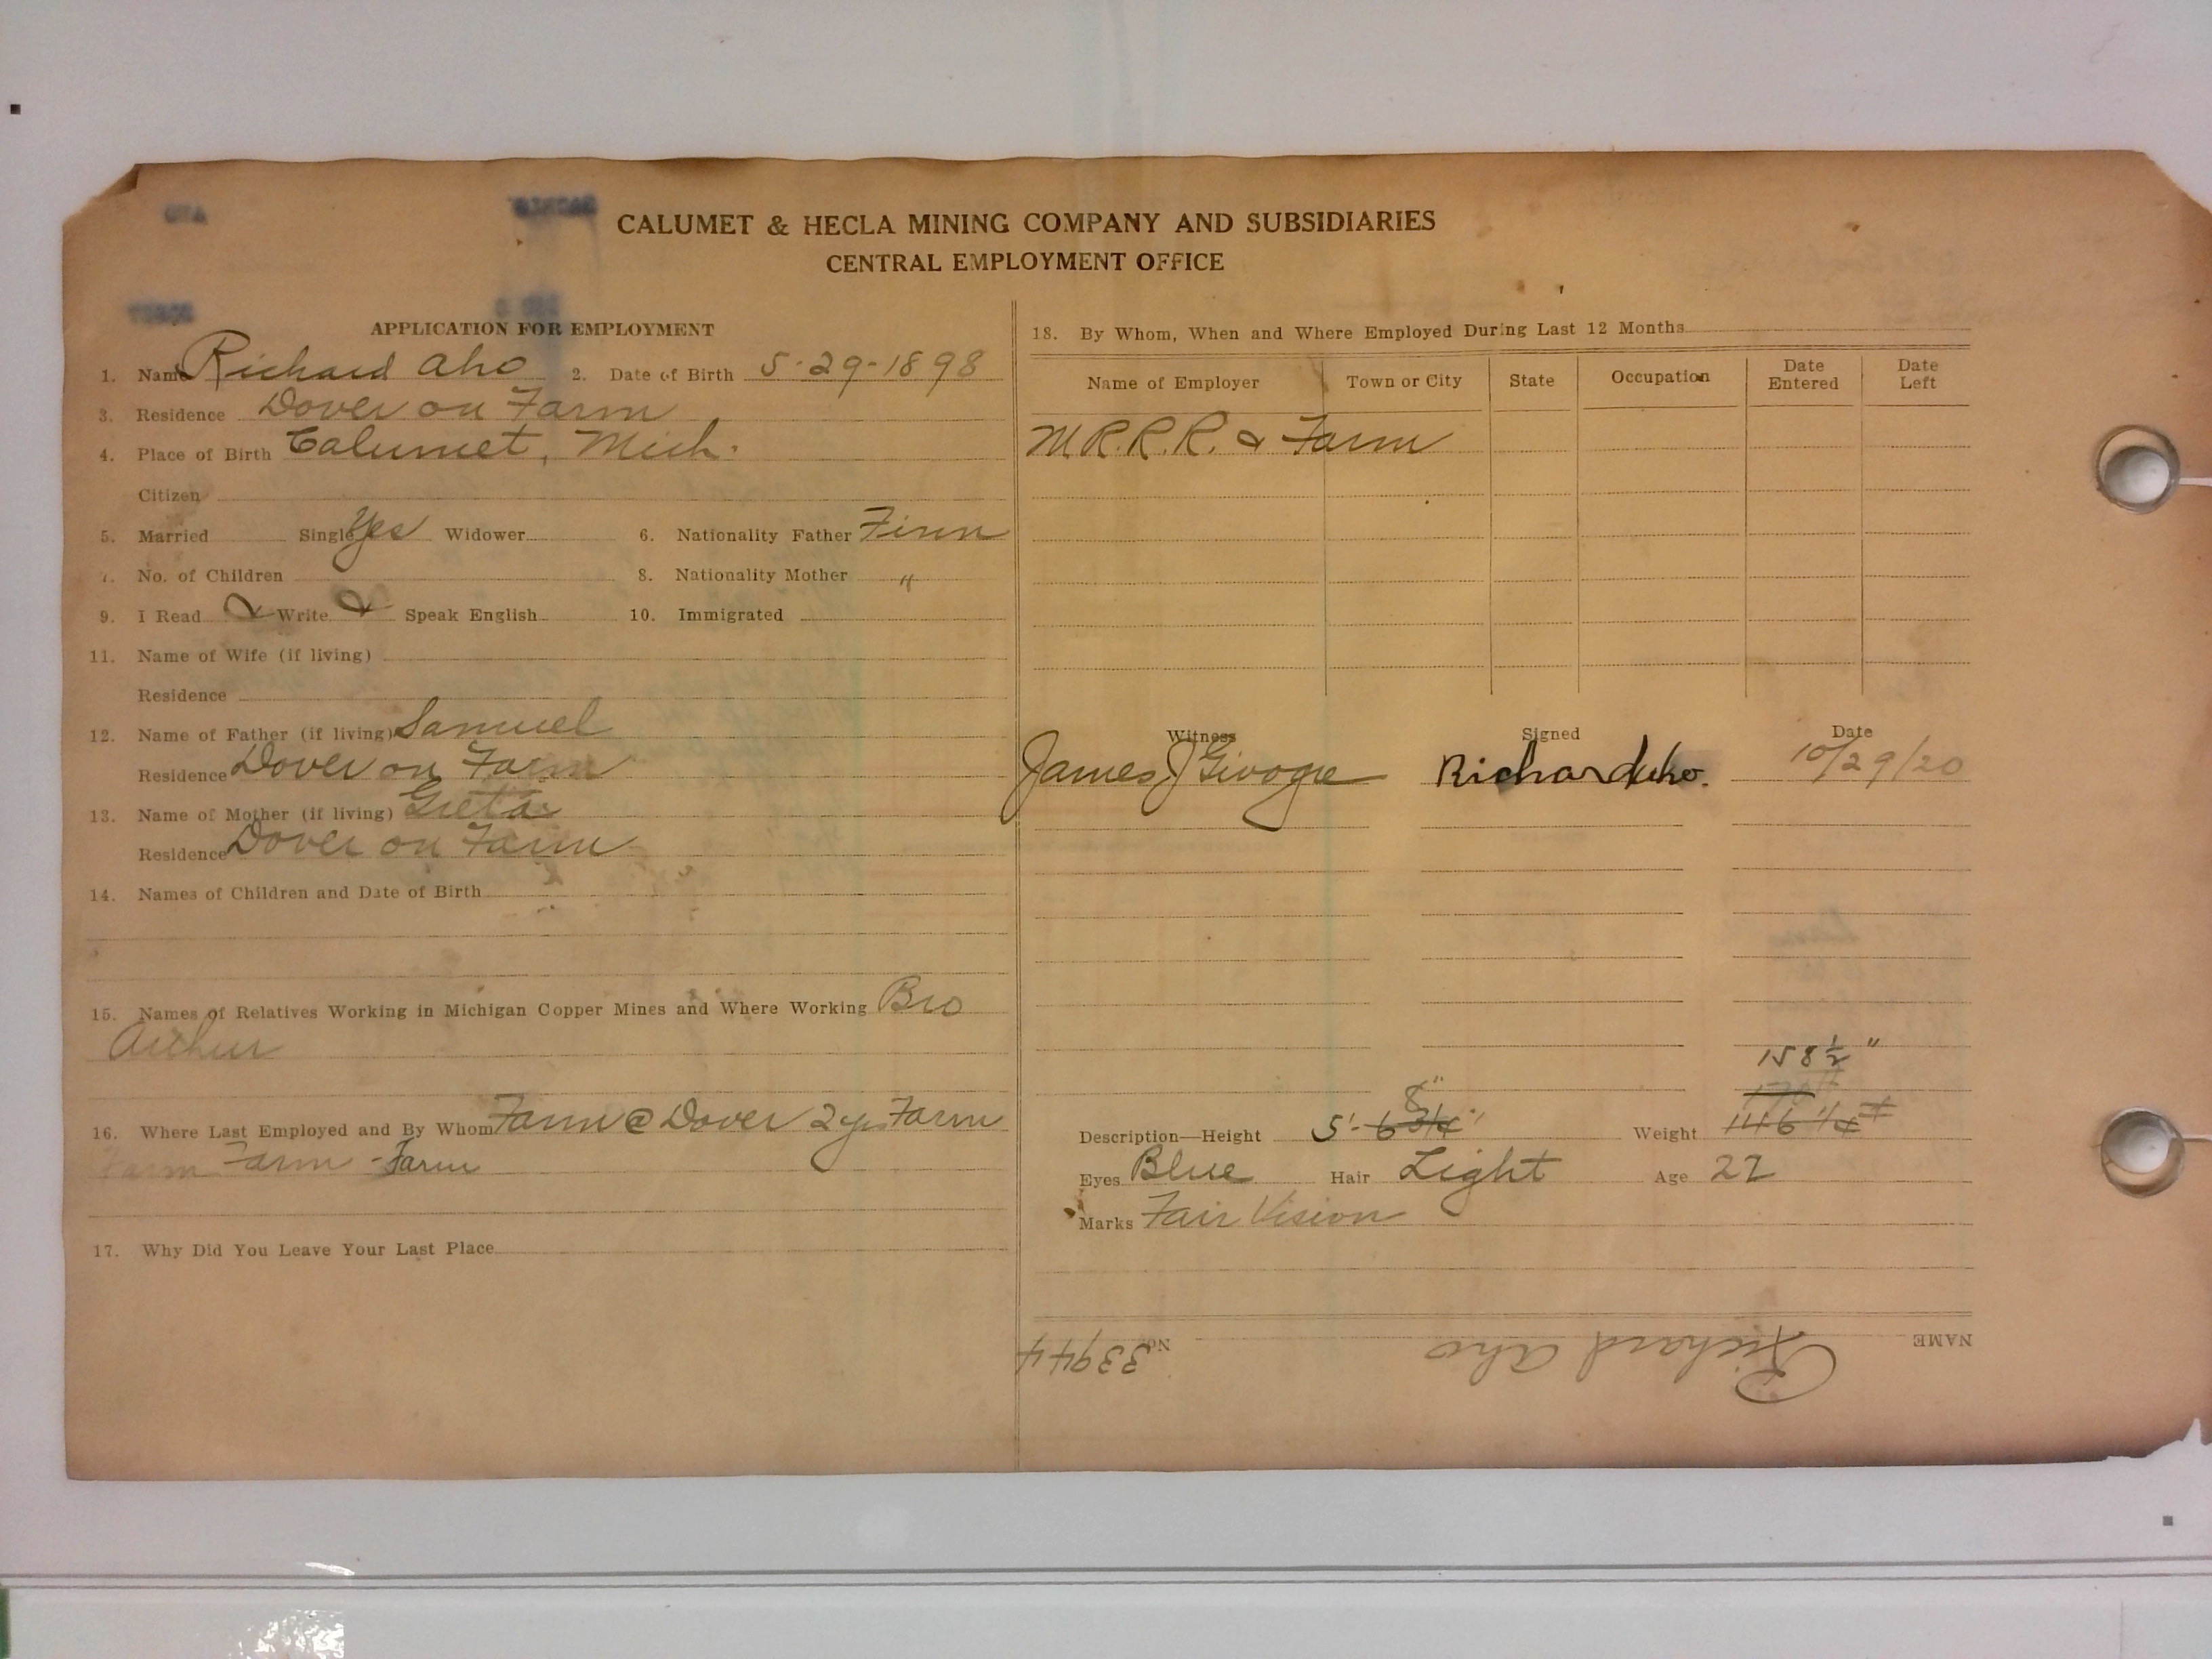 CALUMET & HECLA MINING COMPANY AND SUBSIDIARIES
CENTRAL EMPLOYMENT OFFICE
APPLICATION FOR EMPLOYMENT
1. Name Richard Aho 2. Date of Birth 5-29-1898
3. Residence Dover on Farm
4. Place of Birth Calumet, Mich.
Citizen
5. Married Single Yes Widower 6. Nationality Father Finn
7. No. of Children 8. Nationality Mother "
9. I Read & Write & Speak English 10. Immigrated
11. Name of Wife (if living)
Residence
12. Name of Father (if living) Samuel
Residence Dover on Farm
13. Name of Mother (if living) Greta
Residence Dover on Farm
14. Names of Children and Date of Birth
15. Names of Relatives Working in Michigan Copper Mines and Where Working Bro
Arthur
16. Where Last Employed and By Whom Farm @ Dover 2 yrs Farm
Farm Farm - Farm
17. Why Did You Leave Your Last Place
18. By Whom, When and Where Employed During Last 12 Months
Name of Employer Town or City State Occupation Date Entered Date Left
M.R.R.R. & Farm
Witness Signed Date
James J Richard Aho. 10/29/20
158 1/2 "
8"
Description—Height 5'-6 3/4" Weight 146 1/4 #
Eyes Blue Hair Light Age 22
Marks Fair Vision
NAME Richard Aho No. 33944